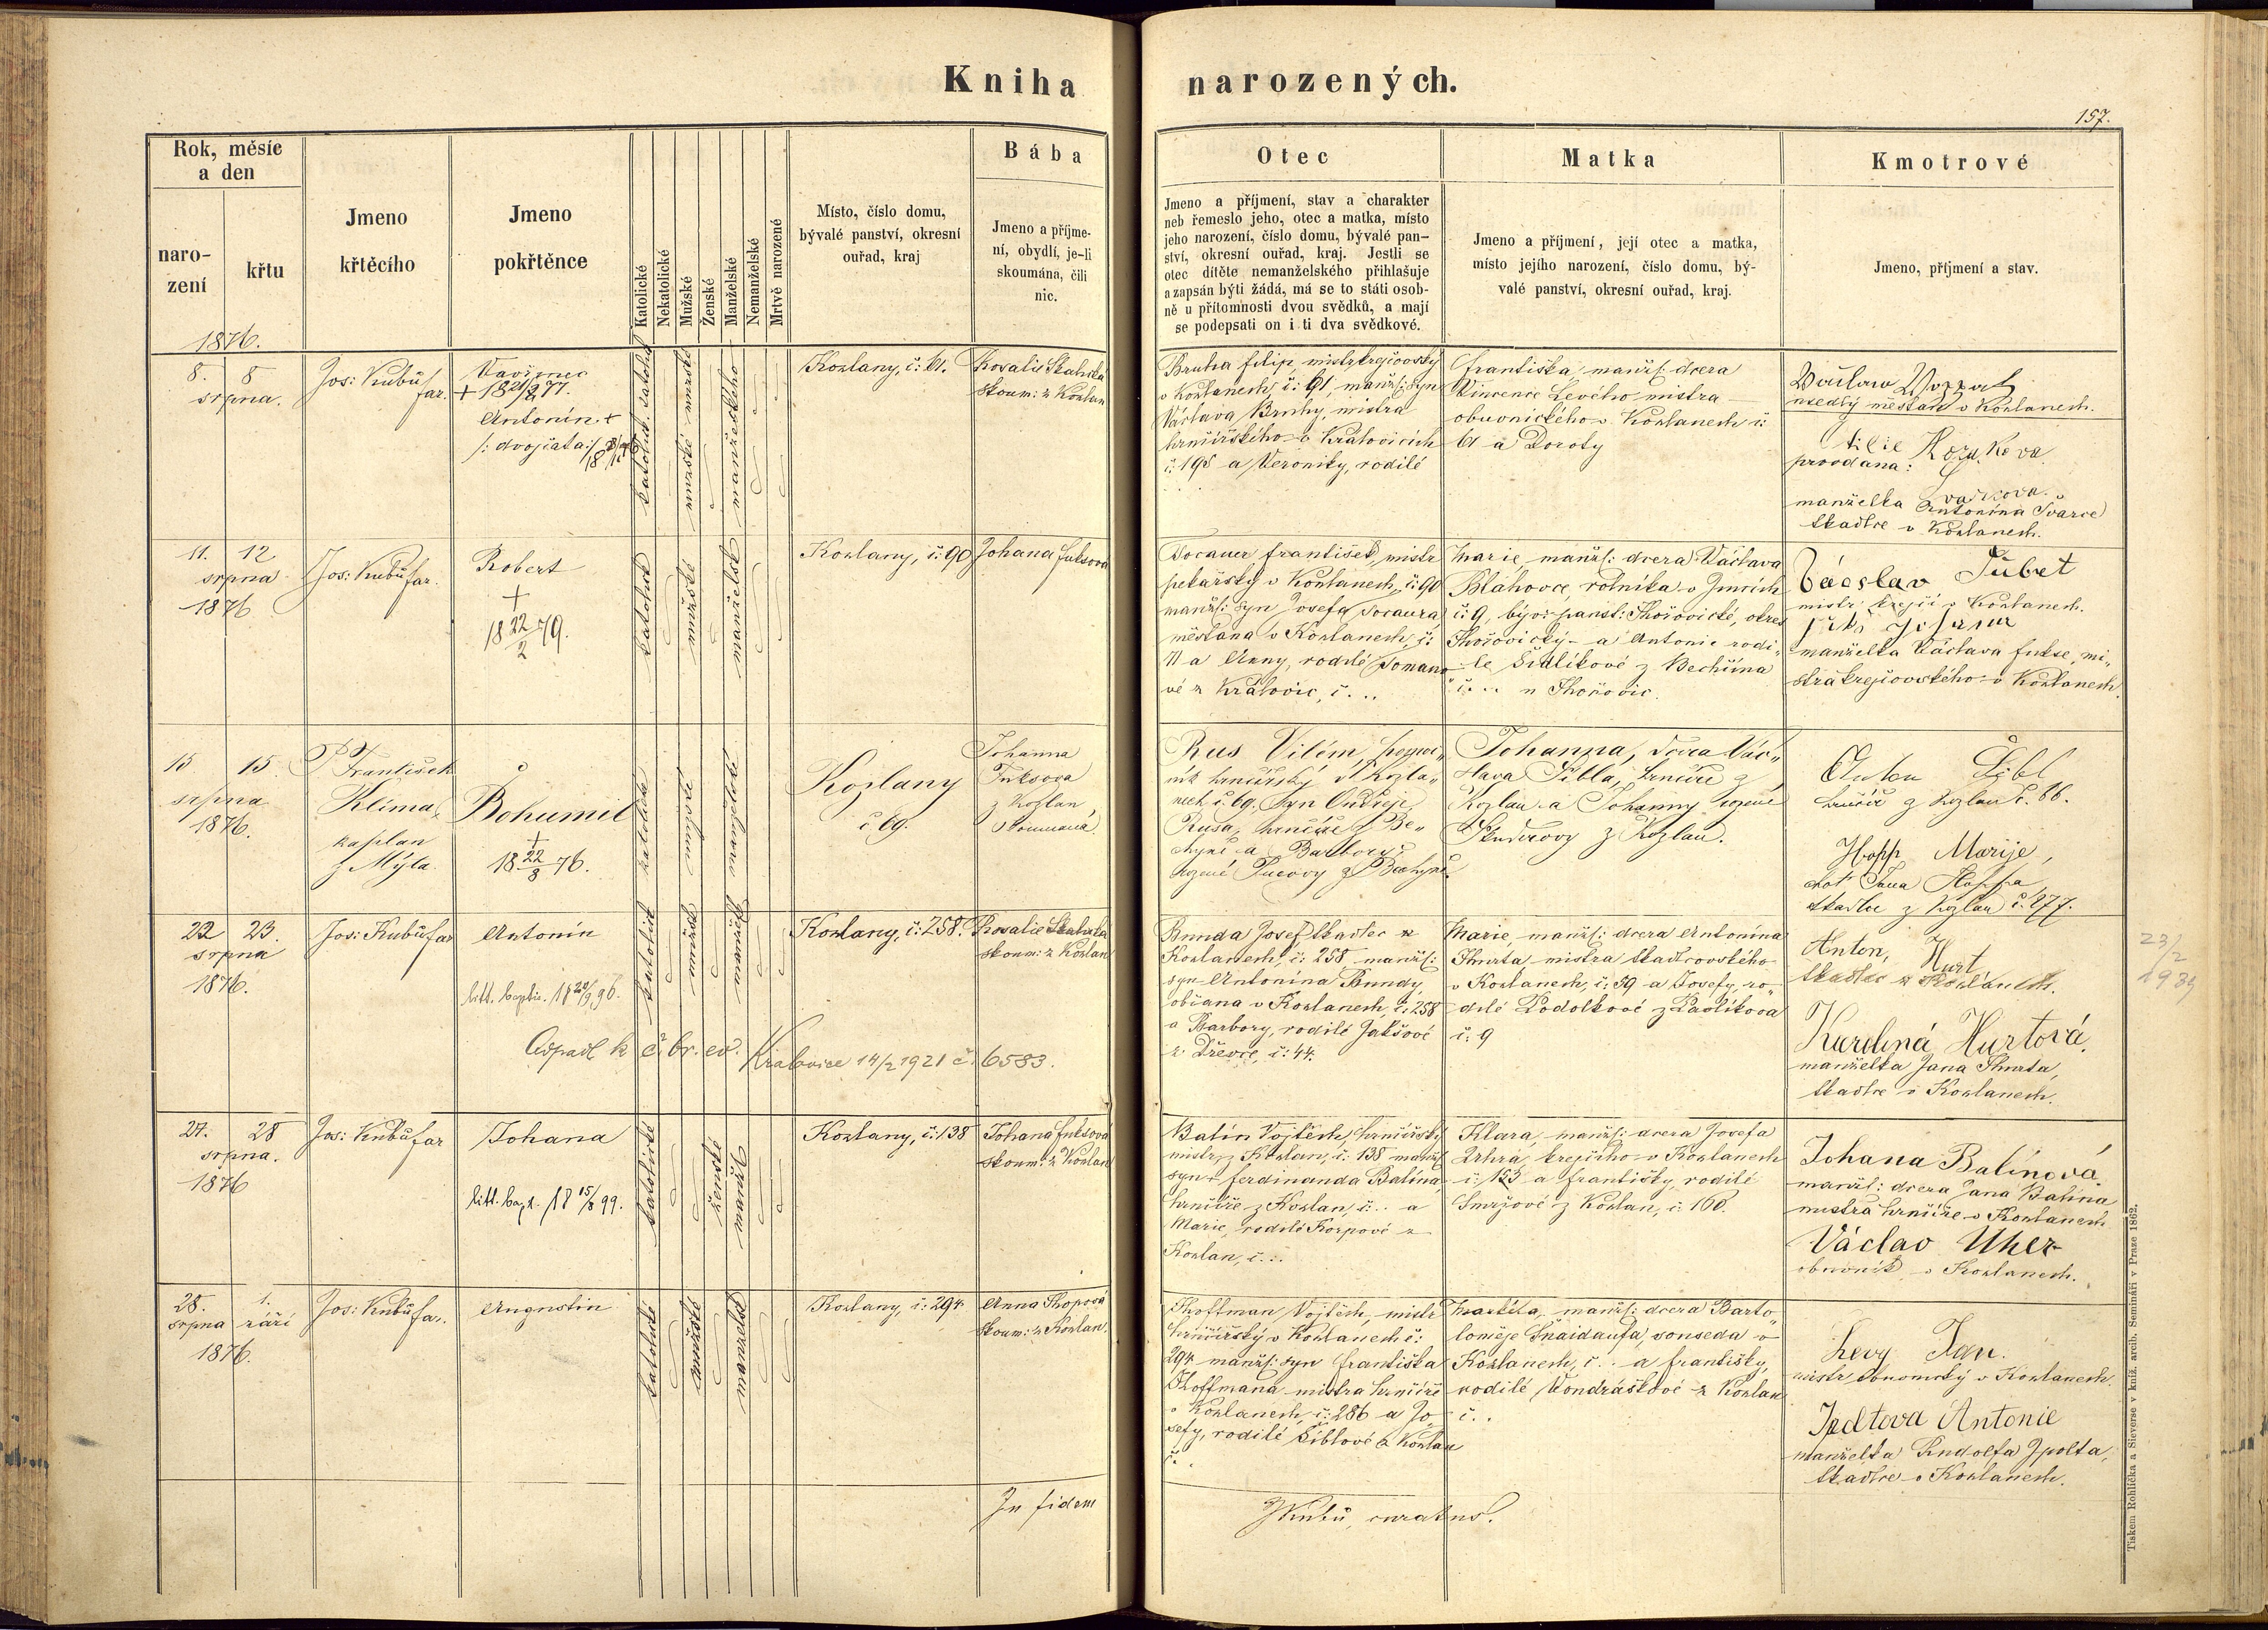 Kniha narozených.
157.
Rok, měsíc
a den
naro-
zení
křtu
Jmeno
křtěcího
Jmeno
pokřtěnce
Katolické
Nekatolické
Mužské
Ženské
Manželské
Nemanželské
Mrtvě narozené
Místo, číslo domu,
bývalé panství, okresní
ouřad, kraj
Bába
Jmeno a příjme-
ní, obydlí, je-li
skoumána, čili
nic.
Otec
Jmeno a příjmení, stav a charakter
neb řemeslo jeho, otec a matka, místo
jeho narození, číslo domu, bývalé pan-
ství, okresní ouřad, kraj. Jestli se
otec dítěte nemanželského přihlašuje
a zapsán býti žádá, má se to státi osob-
ně u přítomnosti dvou svědků, a mají
se podepsati on i ti dva svědkové.
Matka
Jmeno a příjmení, její otec a matka,
místo jejího narození, číslo domu, bý-
valé panství, okresní ouřad, kraj.
Kmotrové
Jmeno, příjmení a stav.
1876.
8. 8
srpna.
Jos: Kubů
far.
Vavřinec
Antonín +
/: dvojčata :/
Kozlany, č: 61.
Rosalie Skalická
skoum: z Kozlan
Bruha Filip, mistr krejčovský
v Kozlanech, č: 61, manžl: syn
Václava Bruhy, mistra
hrnčířského v Kralovicích
č. 195 a Veroniky, rodilé
Františka, manžl: dcera
Vincence Levého mistra
obuvnického v Kozlanech č:
61 a Doroty
Václav
usedlý měšťan v Kozlanech.
provdaná:
manželka Antonína Švarce
tkadlce v Kozlanech.
11. 12
srpna
1876
Jos: Kubů far.
Robert
+
18 22/2 79.
katolické
mužské
manželské
Kozlany, č: 90
Johana Fuksová
Tocauer František, mistr
pekařský v Kozlanech, č: 90
manžl: syn Josefa Tocaura
měšťana v Kozlanech, č:
71 a Anny, rodilé
vé z Kralovic, č...
Marie, manžl: dcera Václava
Blahovce, rolníka v
č: 9, býv: panst: Hořovické, okres
Hořovický a Antonie rodi-
lé Šidlíkové z Bechčína
č... u Hořovic.
Václav Tůbet
mistr krejčí v Kozlanech.
manželka Václava Fukse, mi-
stra krejčovského v Kozlanech.
15 15.
srpna
1876.
P František
Klíma,
kaplan
z Mýta.
Bohumil
+
18 22/8 76.
katolické
manželské
Kozlany
č. 69.
Johanna
Fuksova
z Kozlan
skoumaná
Rus Vilém, pomoc-
ník hrnčířský v Kozla-
nech č. 69, syn Ondřeje
Rusa, hrnčíře z Be-
chyně a Barbory
rozené Pucovy z Bechyně.
Johanna, dcera Vác-
slava Šibla, hrnčíře z
Kozlan a Johanny rozené
z Kozlan.
Anton Šibl
hrnčíř z Kozlan č. 66.
Hopp Marije,
choť Jana Hoppa
tkadlce z Kozlan č. 277.
22 23.
srpna
1876.
Jos: Kubů far
Antonín
litt. baptis. 18 20/9 96.
Odpadl k č. br. ev. Kralovice 14/2 1921 č. 6583.
katolické
mužské
Kozlany, č: 258.
Rosalie Skalická
skoum: z Kozlan
Bunda Josef tkadlec z
Kozlanech, č: 258 manžl:
syn Antonína Bundy,
občana v Kozlanech, č: 258
a Barbory, rodilé Jakšové
z Dřevce, č: 44.
Marie, manžl: dcera Antonína
Hurta mistra tkadlcovského
v Kozlanech, č: 59 a Josefy, ro-
dilé Podolkové z Pavlíkova
č: 9
Anton, Hurt
tkadlec z Kozlánech.
Karolina Hurtová,
manželka Jana Hurta,
tkadlce v Kozlanech.
23/2
1939
27. 28
srpna.
1876
Jos: Kubů far
Johana
litt. bapt. 18 15/8 99.
katolické
ženské
Kozlany, č: 138
Johana Fuksová
skoum: z Kozlan
Balín Vojtěch, hrnčířský
mistr z Kozlan, č. 138 manžl
syn Ferdinanda Balína,
hrnčíře z Kozlan, č.. a
Marie, rodilé Korpové z
Kozlan, č...
Klara, manžl: dcera Josefa
Uhra, krejčího v Kozlanech
č: 153 a Františky, rodilé
Smržové z Kozlan, č: 160.
Johana Balínová,
manžl: dcera Jana Balína
mistra hrnčíře v Kozlanech
Václav Uher
obuvník v Kozlanech.
28. 1.
srpna září
1876.
Jos: Kubů far.
Augustin
katolické
mužské
manželské
Kozlany, č: 294
Anna Hopová
skoum: z Kozlan.
Hoffman Vojtěch, mistr
hrnčířský v Kozlanech č:
294 manžl: syn Františka
Hoffmana mistra hrnčíře
v Kozlanech, č: 286 a Jo-
sefy, rodilé Šiblové z Kozlan
č..
Markéta, manžl: dcera Barto-
loměje Šnaidaufa, souseda v
Kozlanech, č... a Františky,
rodilé Vondráškové z Kozlan
č..
Levy Ign.
mistr obuvnický v Kozlanech.
Antonie
manželka Rudolfa
tkadlce v Kozlanech.
In fidem
JKubů, curatus.
Tiskem Rohlíčka a Sieverse v kníž. arcib. Semináři v Praze 1862.